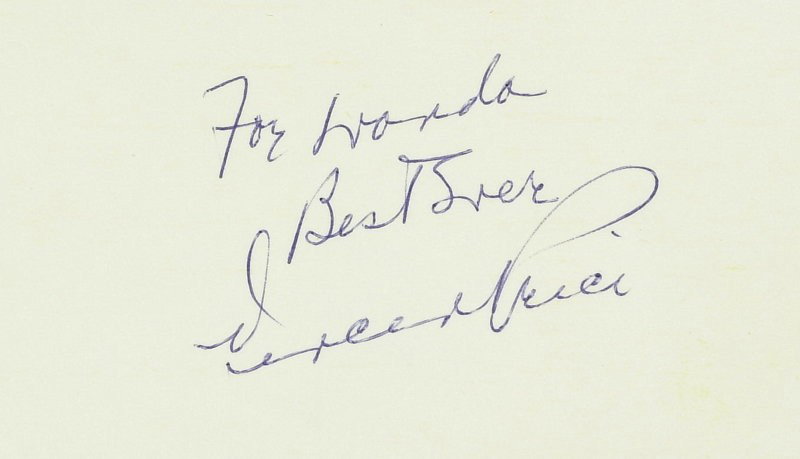 For Wanda
Best Ever
Vincent Price